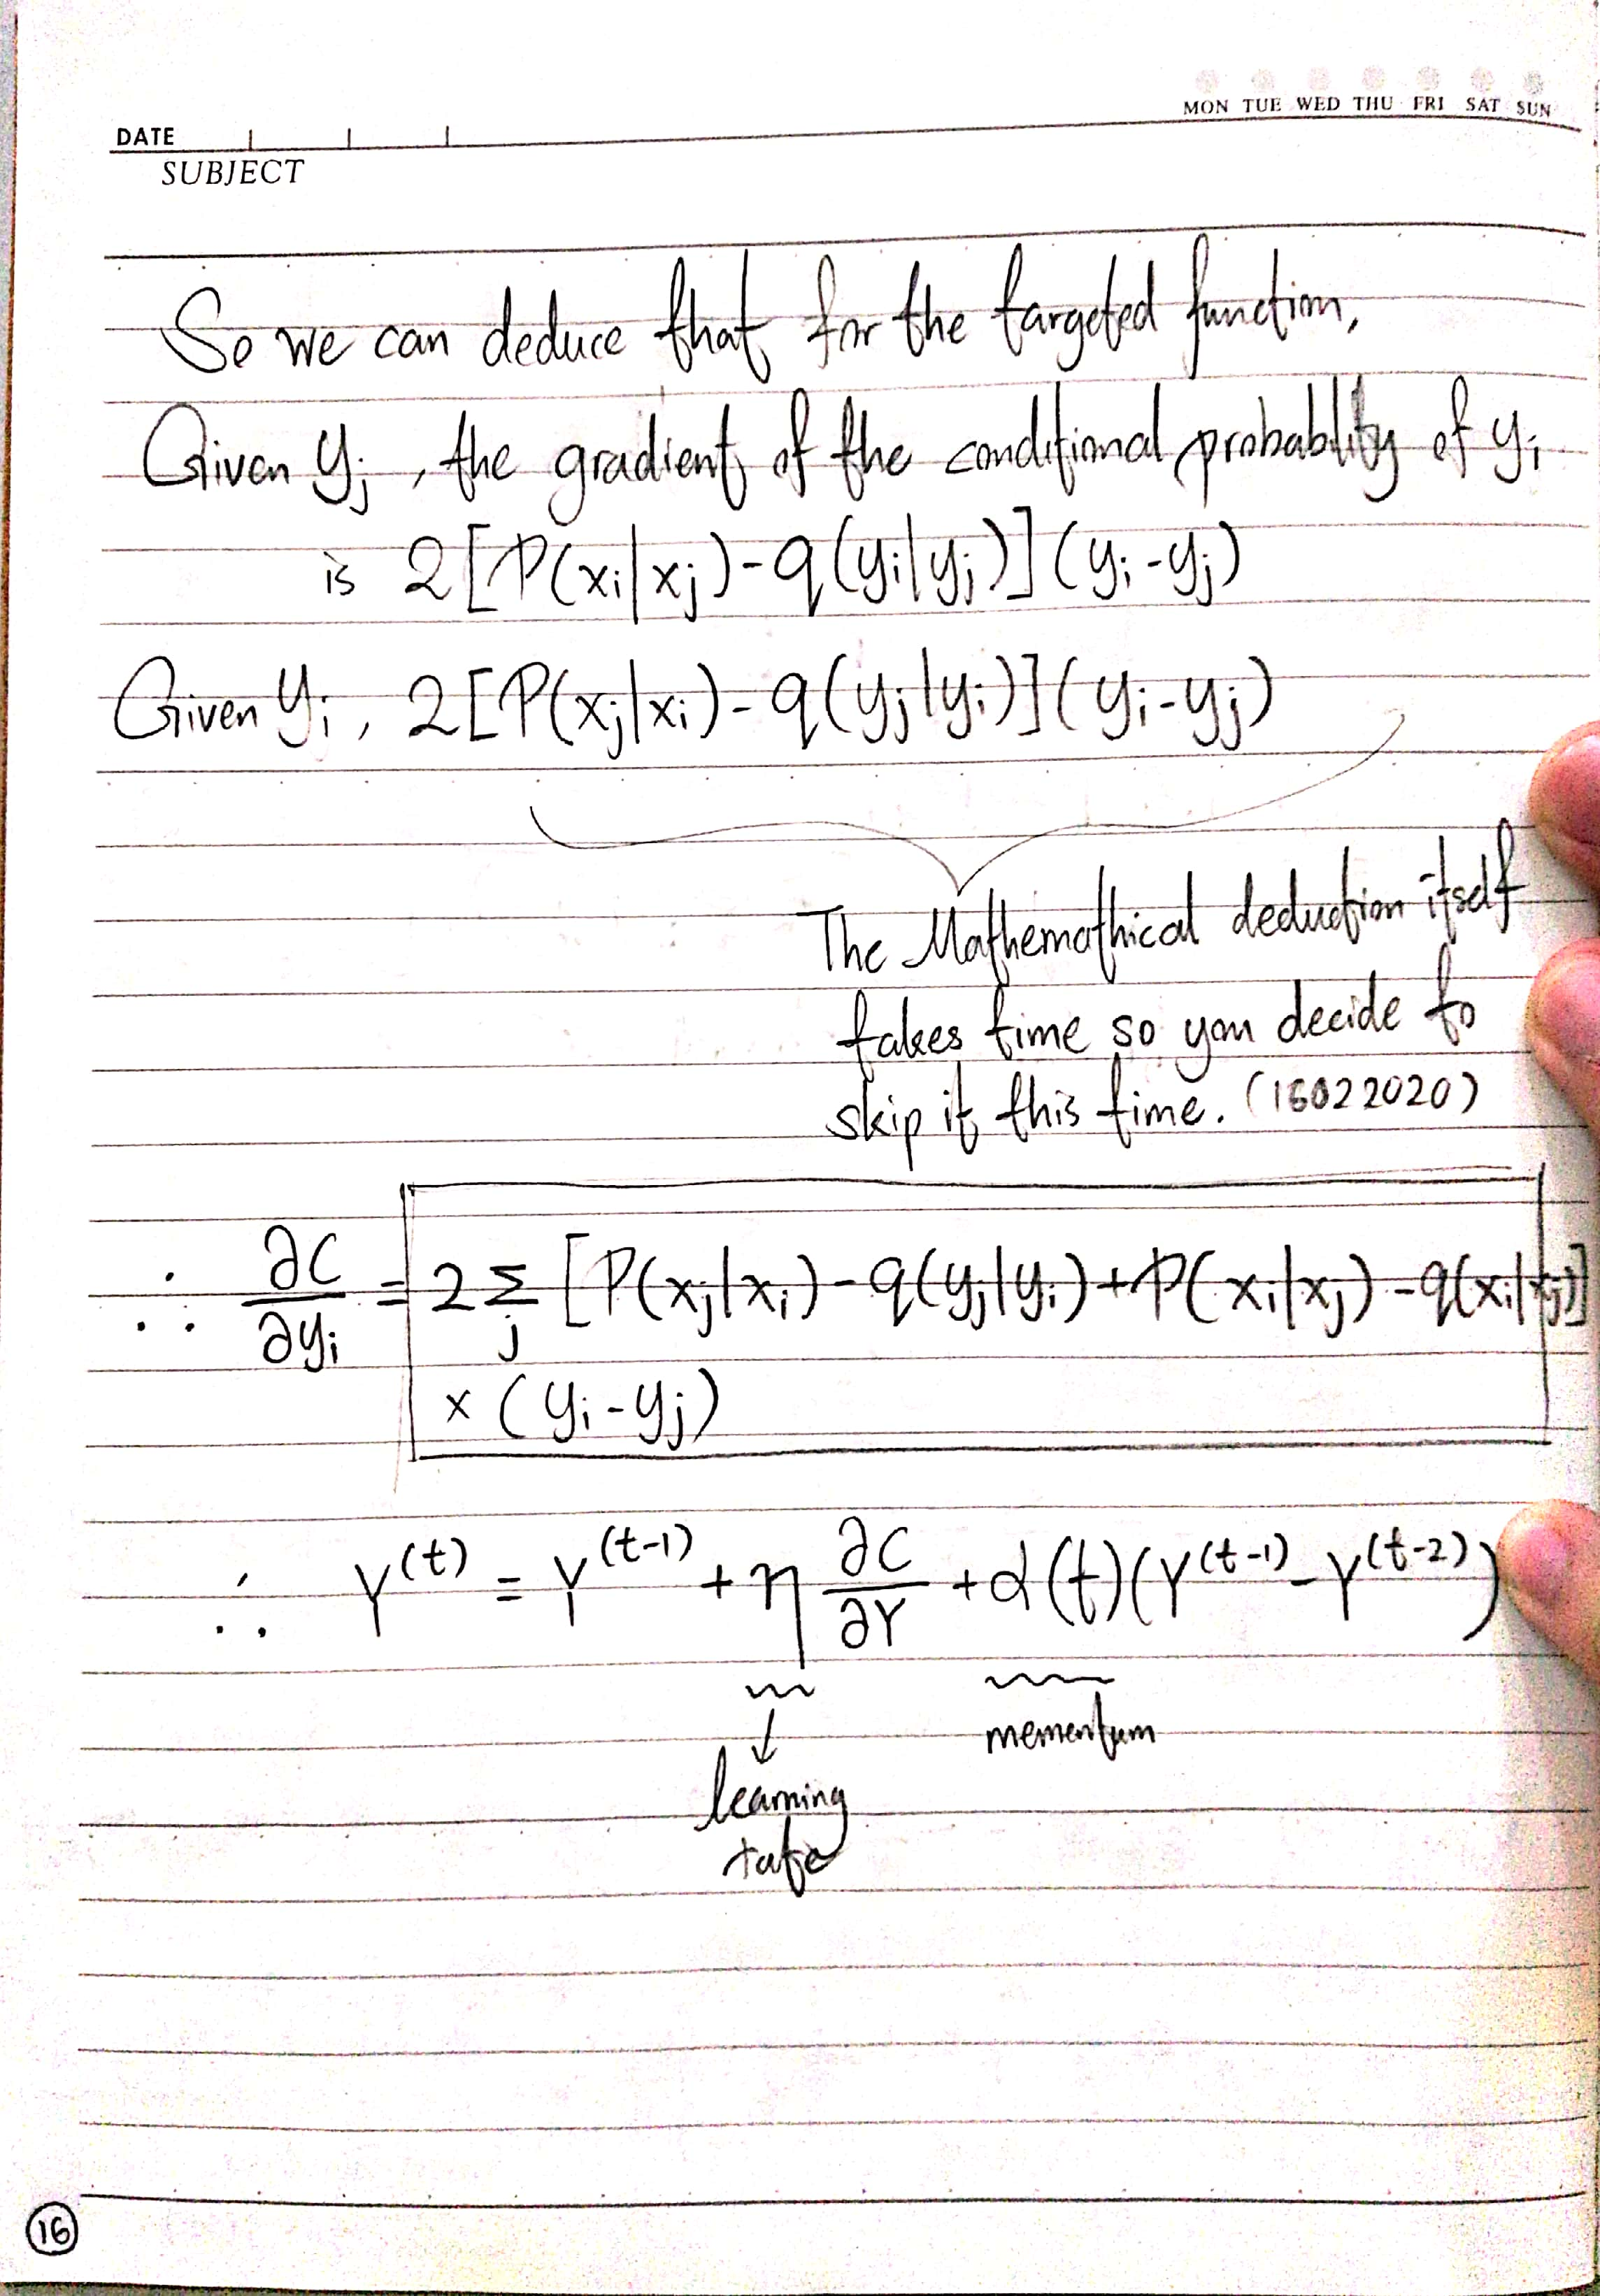 MON TUE WED THU FRI SAT SUN
DATE
SUBJECT
So we can deduce that for the targeted function,
Given yj, the gradient of the conditional probablity of yi
is 2[P(xi|xj)-q(yi|yj)](yi-yj)
Given yi, 2[P(xj|xi)-q(yj|yi)](yi-yj)
The Mathemathical deduction itself
takes time so you decide to
skip it this time. (16022020)
∴ ∂C/∂yi = 2 Σj [P(xj|xi)-q(yj|yi)+P(xi|xj)-q(xi|xj)]
×(yi-yj)
∴ Y^(t) = Y^(t-1) + η ∂C/∂Y + α(t)(Y^(t-1)-Y^(t-2))
↓ momentum
learning
rate
16